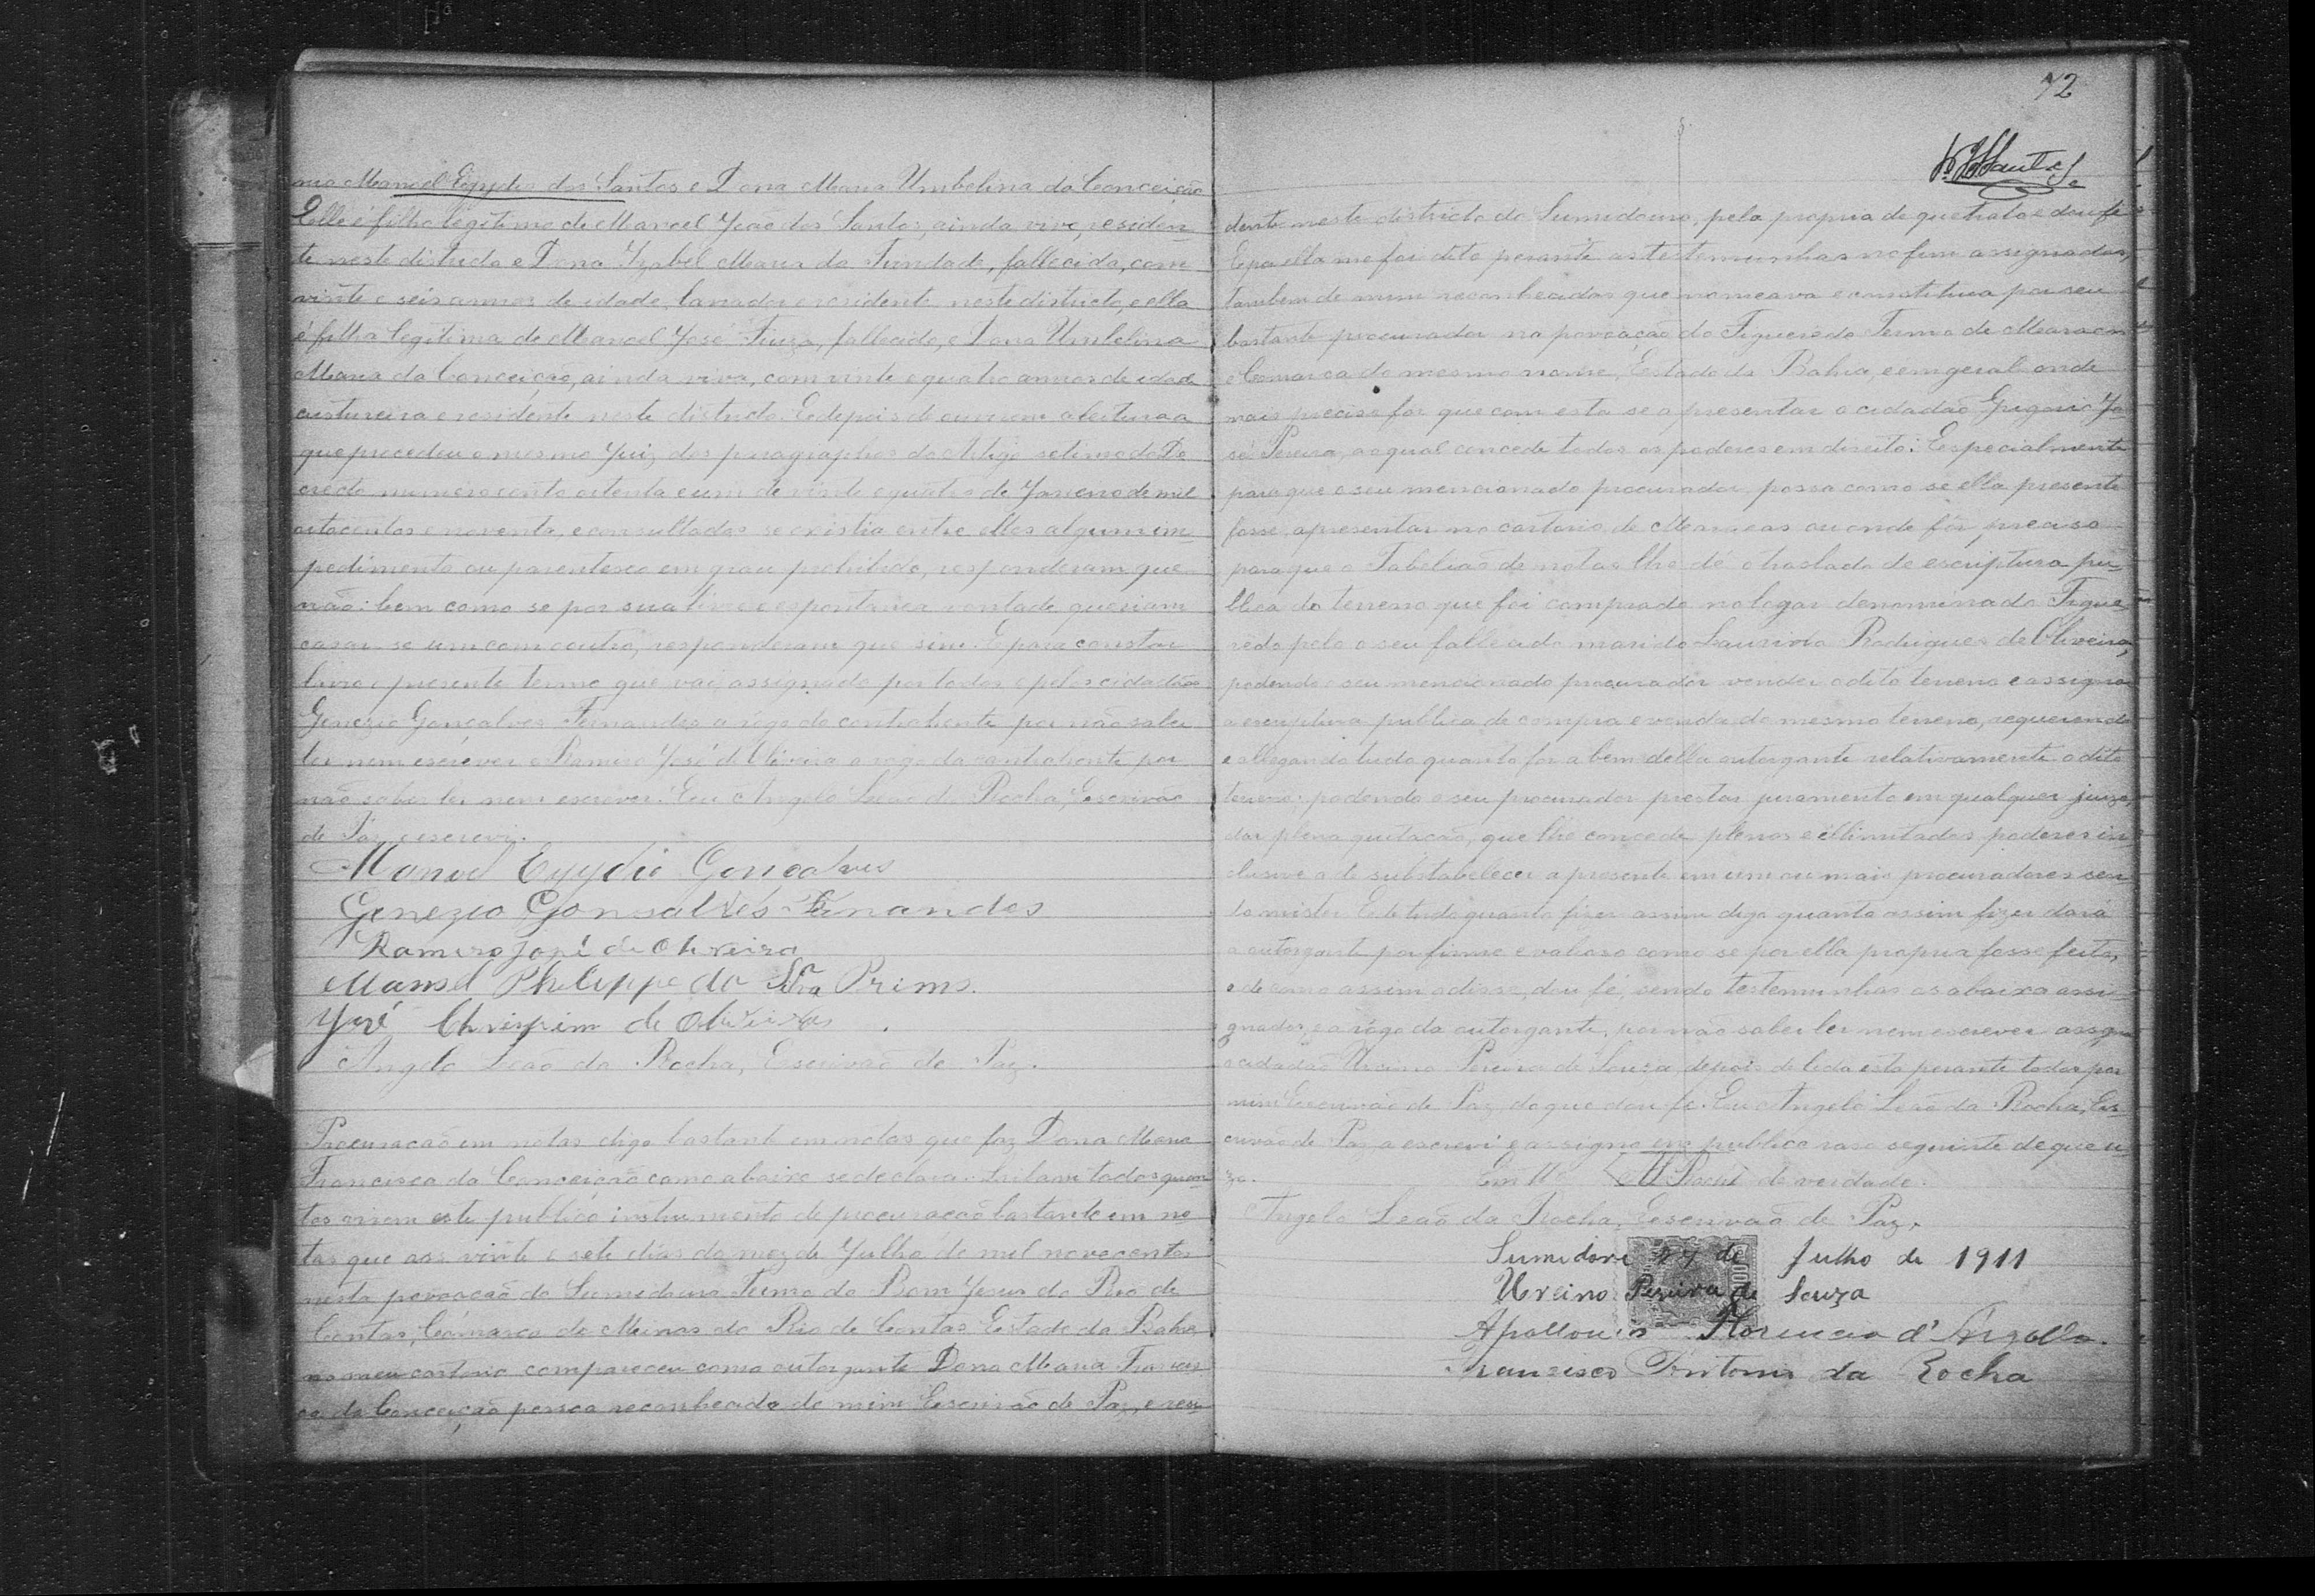 nio Manoel Egydio dos Santos e Dona Maria Umbelina da Conceição
Elle é filho legitimo de Manoel João dos Santos, ainda vivo, residen-
te neste districto e Dona Izabel Maria da Trindade, fallecida, com
vinte e seis annos de idade, lavrador e residente neste districto, e ella
é filha legitima de Manoel José Fiuza, fallecido, e Dona Umbelina
Maria da Conceição, ainda viva, com vinte e quatro annos de idade
custureira e residente neste districto. E depois de ouvirem a leitura a
que procedeu o mesmo Juiz dos paragraphos do Artigo setimo do De-
creto numero cento oitenta e um de vinte e quatro de Janeiro de mil
oitocentos e noventa, e consultados se existia entre elles algum im-
pedimento ou parentesco em grau prohibido, responderam que
não; bem como se por sua livre e espontanea vontade queriam
casar se um com outro, responderam que sim. E para constar
lavro o presente termo que vai assignado por todos e pelos cidadãos
Genezio Gonçalves Fernandes a rógo do contrahente por não saber
ler nem escrever e Ramiro José d'Oliveira a rogo da contrahente por
não saber ler nem escrever. Eu Angelo Leão da Rocha, Escrivão
de Paz, o escrevi.
Manoel Egydio Goncalves
Genezio Gonsalves Fernandes
Ramiro José de Oliveira
Manoel Philippe da Sª Primo.
José Chrispim de Oliveira.
Angelo Leão da Rocha, Escrivão de Paz.
Procuração em notas digo bastante em notas que faz Dona Maria
Francisca da Conceição como abaixo se declara. Saibam todos quan-
tos virem este publico instrumento de procuração bastante em no-
tas que aos vinte e sete dias do mez de Julho de mil novecentos
nesta povoação do Sumidouro Termo do Bom Jesus do Rio de
Contas, Cómarca de Minas do Rio de Contas Estado da Bahia
no meu cartorio compareceu como outorgante Dona Maria Francis-
ca da Conceição pessoa reconhecida de mim Escrivão de Paz, e resi-
72
dente neste districto do Sumidouro, pela propria de que trato e dou fé
E por ella me foi dito perante as testemunhas no fim assignadas,
tambem de mim reconhecidas que nomeava e constituia por seu
bastante procurador na povoação do Figueredo Termo de Maracas
e Comarca do mesmo nome, Estado da Bahia, e em geral onde
mais preciso for que com esta se apresentar o cidadão Grigorio Jo-
sé Pereira, ao qual concede todos os poderes em direito: Especialmente
para que o seu mencionado procurador possa como se ella presente
fosse, apresentar no cartorio de Maracas ou onde fôr preciso
para que o Tabelião de notas lhe dê o traslado de escriptura pu-
blica do terreno que foi comprado no logar denominado Figue-
redo pelo o seu fallecido marido Laurindo Rodrigues de Oliveira,
podendo o seu mencionado procurador vender o dito terreno e assignar
a escriptura publica de compra e venda do mesmo terreno, requerendo
e allegando tudo quanto for a bem della outorgante relativamente o dito
terreno; podendo o seu procurador prestar juramento em qualquer juizo,
dar plena quitação, que lhe concede plenos e illimitados poderes in-
clusive o de substabelecer a presente em um ou mais procuradores sen-
do mister. E de tudo quanto fizer assim digo quanto assim fizer dará
a outorgante por firme e valioso como se por ella propria fosse feito,
e de como assim o disse, dou fé, sendo testemunhas os abaixo assi-
gnados, e a rógo da outorgante, por não saber ler nem escrever assigna
o cidadão Ursino Pereira de Souza depois de lida esta perante todos por
mim Escrivão de Paz, do que dou fé. Eu Angelo Leão da Rocha, Es-
crivão de Paz a escrevi e assigno em publico raso seguinte de que u-
zo.
Em tto de verdade.
Angelo Leão da Rocha, Escrivão de Paz.
Sumidoro 27 de Julho de 1911
Ursino Pereira de Souza
Florencio d'Argollo.
Francisco Antonio da Rocha